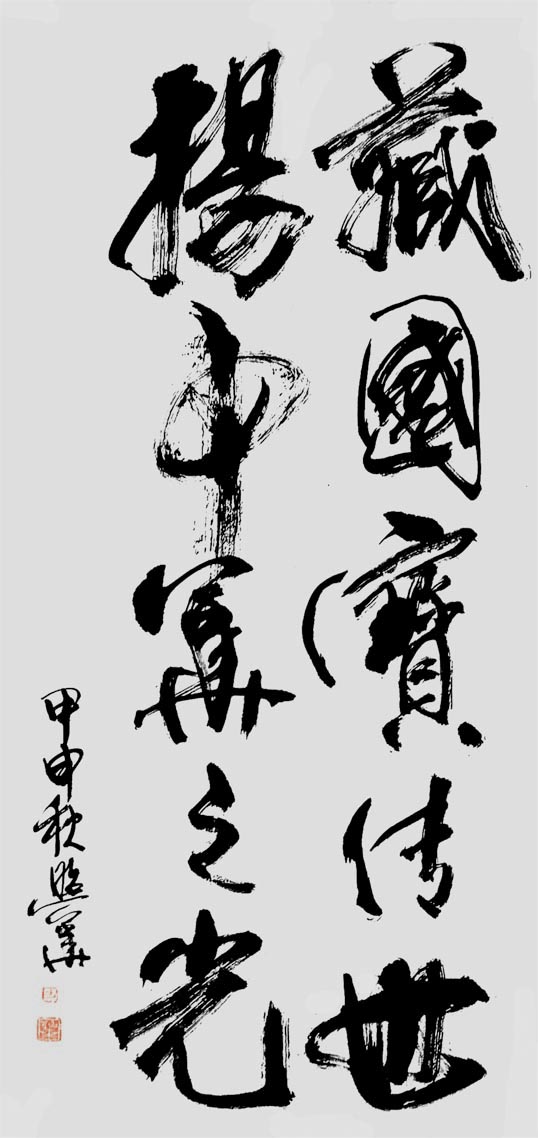 藏國寶传世
揚中華之光
甲申秋照華